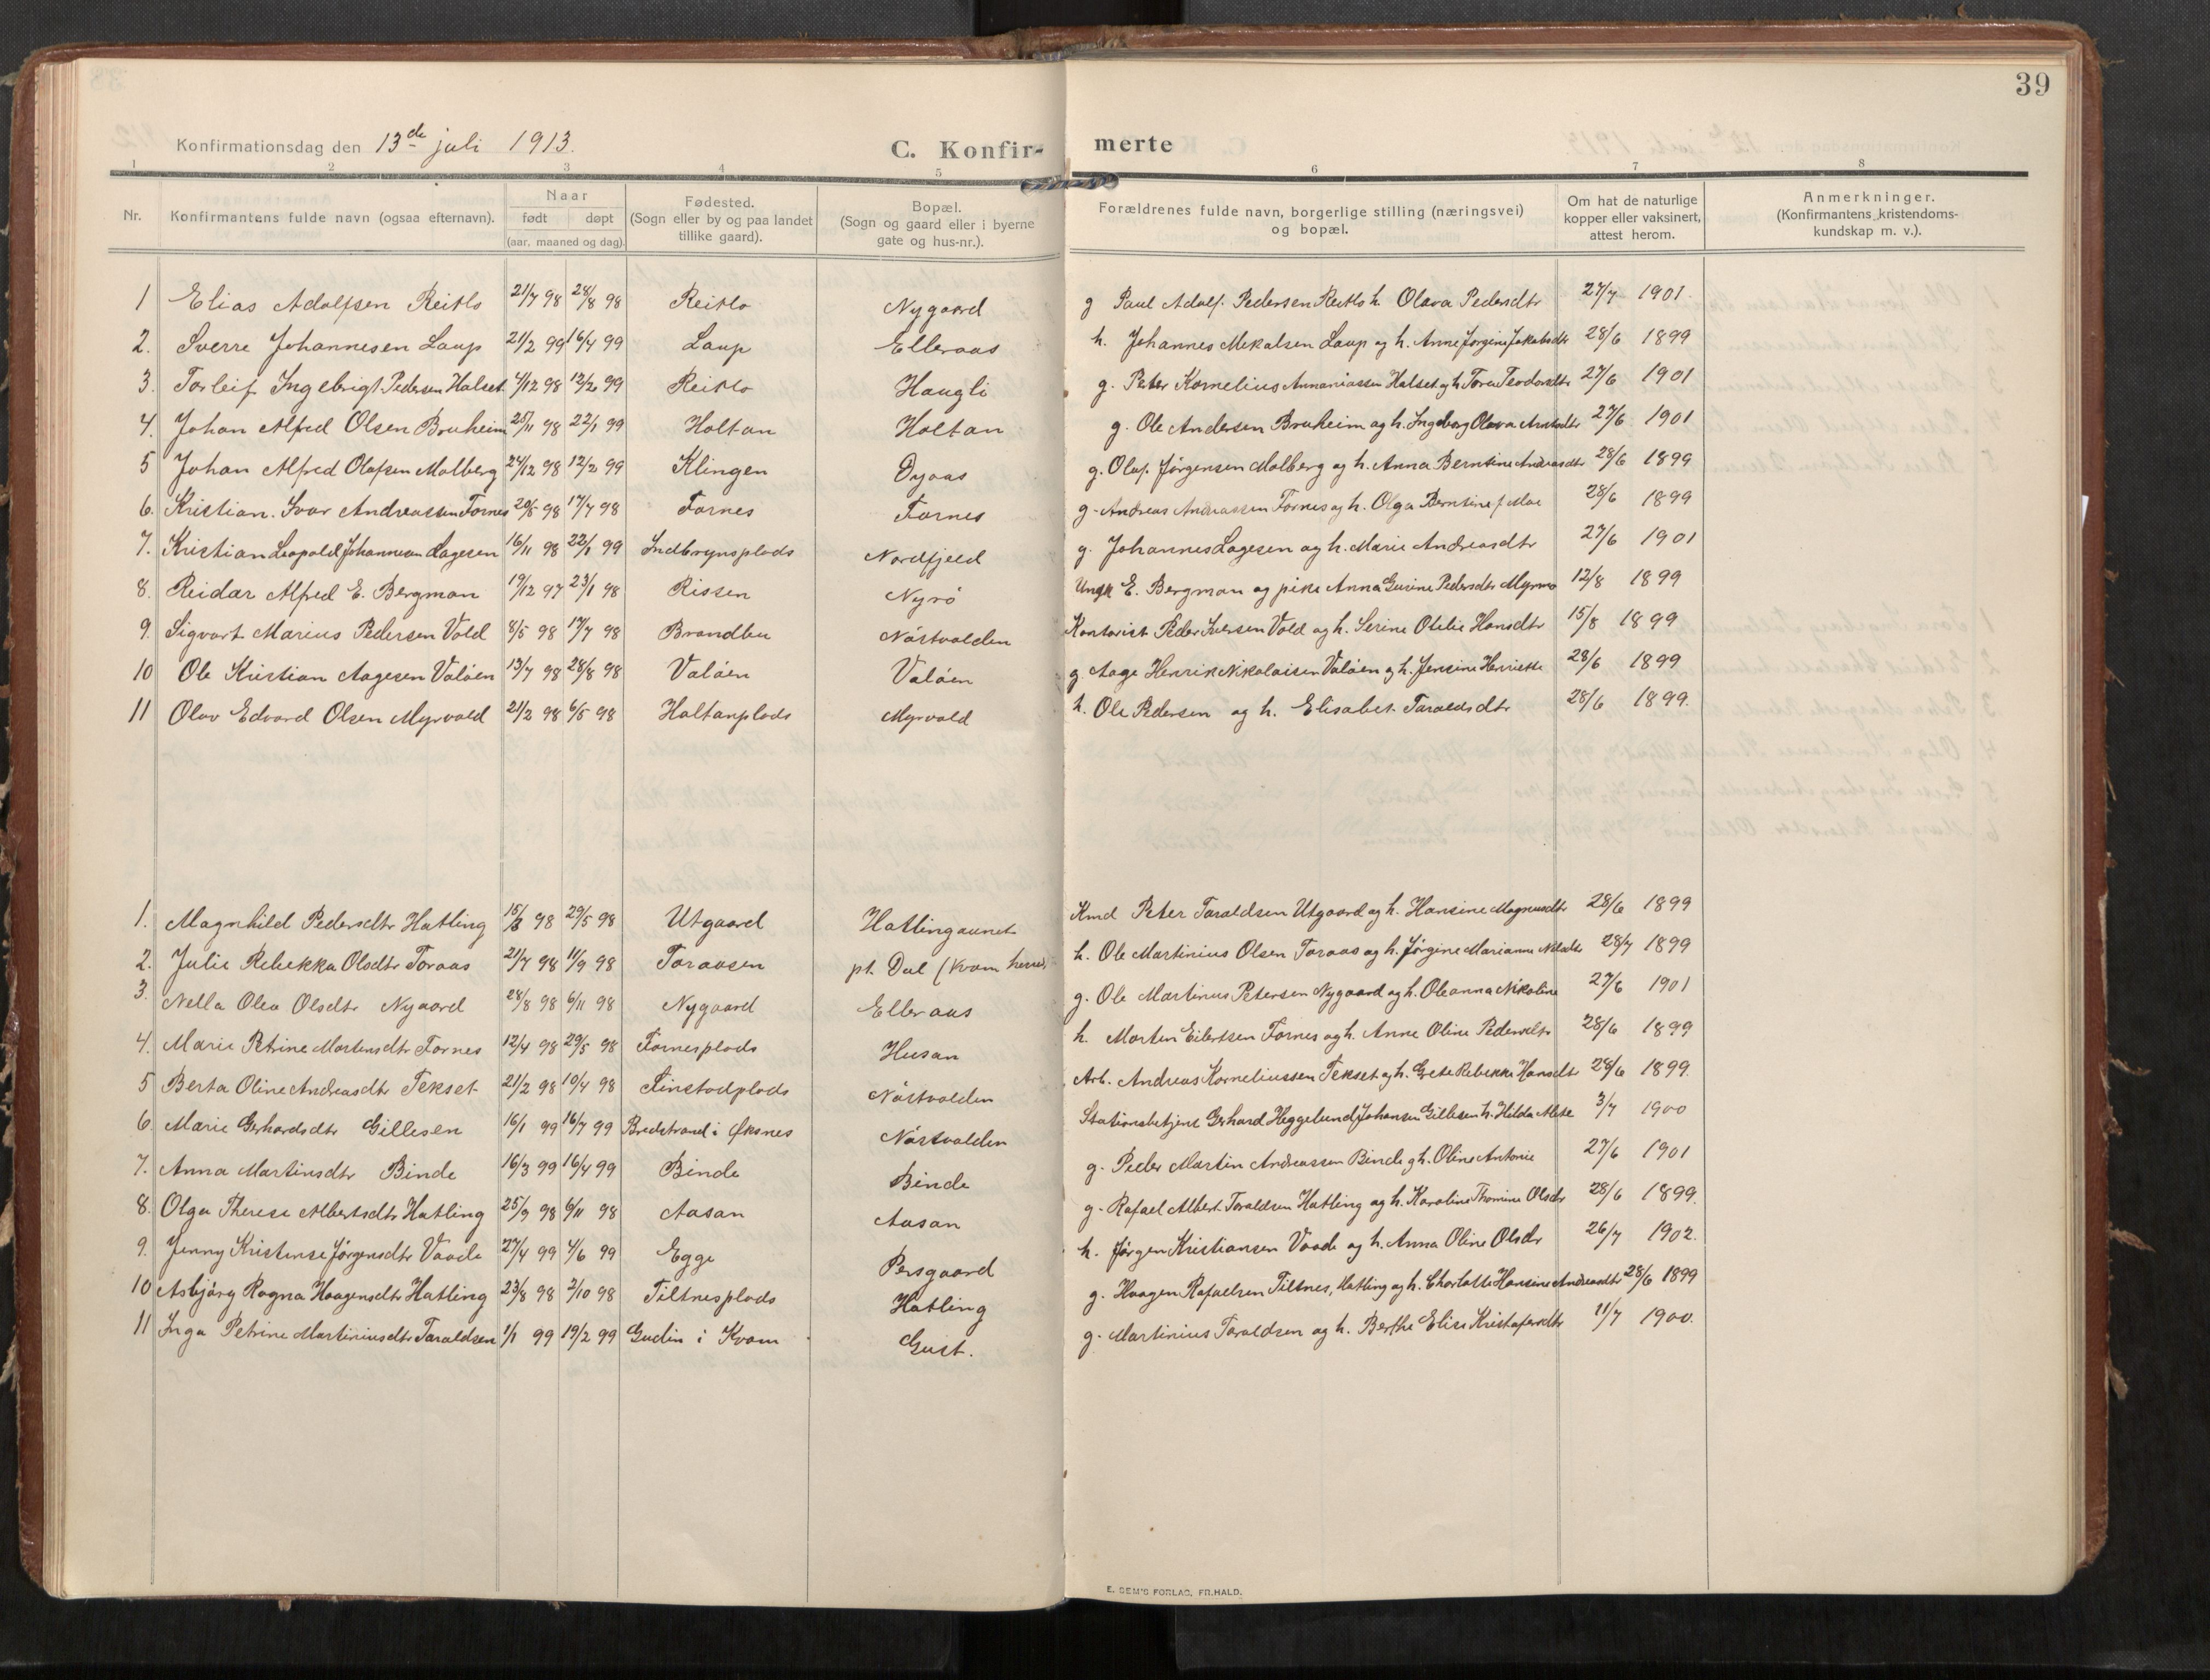 39
Konfirmationsdag den 13de juli 1913.
C. Konfirmerte
1 2 3 4 5 6 7 8
Nr. Konfirmantens fulde navn (ogsaa efternavn). Naar født døpt (aar, maaned og dag). Fødested. (Sogn eller by og paa landet tillike gaard). Bopæl. (Sogn og gaard eller i byerne gate og hus-nr.). Forældrenes fulde navn, borgerlige stilling (næringsvei) og bopæl. Om hat de naturlige kopper eller vaksinert, attest herom. Anmerkninger. (Konfirmantens kristendoms-kundskap m. v.).
1 Elias Adolfsen Reitlo 21/7 98 28/8 98 Reitlo Nygaard g Paul Adolf Pedersen Reitlo h. Olava Pedersdtr 27/7 1901.
2. Sverre Johannesen Laup 21/2 99 16/4 99 Laup Elleraas h. Johannes Mekalsen Laup og h. Anne Jørgine Jakobsdtr 28/6 1899
3. Torleif Ingebrigt Pedersen Halset 4/12 98 12/2 99 Reitlo Haugli g. Peter Kornelius Annaniassen Halset og h. Tora Teodorsdtr 27/6 1901
4. Johan Alfred Olsen Bruheim 25/11 98 22/1 99 Holtan Holtan g. Ole Andersen Bruheim og h. Ingeborg Olava Arntsdtr 27/6 1901
5 Johan Alfred Olafsen Molberg 24/12 98 12/2 99 Klingen Dyaas g. Olaf Jørgensen Molberg og h. Anna Berntine Andreasdtr 28/6 1899
6. Kristian Ivar Andreassen Fornes 20/5 98 17/7 98 Fornes Fornes g. Andreas Andreassen Fornes og h. Olga Berntine f Moe 28/6 1899
7. Kristian Leopold Johannesen Lagesen 16/11 98 22/1 99 Indbrynsplads Nordfjeld g. Johannes Lagesen og h. Marie Andreasdtr 27/6 1901
8. Reidar Alfred E. Bergman 19/12 97 23/1 98 Rissen Nyrö Ungk E. Bergman og pike Anna Gurine Pedersdtr Myrmo 12/8 1899
9. Sigvart Marius Pedersen Vold 8/5 98 17/7 98 Brandbu Nástvolden Kontorist Peder Iversen Vold og h. Serine Otilie Hansdtr 15/8 1899
10 Ole Kristian Aagesen Valöen 13/7 98 28/8 98 Valöen Valöen g. Aage Henrik Nikolaisen Valöen og h. Jensine Henriette 28/6 1899
11 Olav Edvard Olsen Myrvold 21/2 98 6/5 98 Holtanplads Myrvold h. Ole Pedersen og h. Elisabet Taraldsdtr 28/6 1899.
1. Magnhild Pedersdtr Hatling 98 29/5 98 Utgaard Hatlingaunet Kmd Peter Taraldsen Utgaard og h. Hansine Magnusdtr 28/6 1899
2. Julie Rebekka Olsdtr Toraas 21/7 98 11/9 98 Toraasen pt. Dal (Kvam herred) h. Ole Martinius Olsen Toraas og h. Jørgine Marianne Nilsdtr 28/7 1899
3. Nella Olea Olsdtr Nygaard 28/8 98 6/11 98 Nygaard Elleraas g. Ole Martinus Petersen Nygaard og h. Oleanna Nikoline 27/6 1901
4. Marie Petrine Mortensdtr Fornes 12/4 98 29/5 98 Fornesplads Husan h. Morten Eilertsen Fornes og h. Anne Oline Pedersdtr 28/6 1899
5 Berta Oline Andreasdtr Tekset 21/2 98 10/4 98 Finstadplads Nástvolden Arb. Andreas Korneliussen Tekset og h. Grete Rebekke Hansdtr 28/6 1899.
6. Marie Gerhardsdtr Gillesen 16/1 99 16/7 99 Bredstrand i Øksnes Nástvolden Stationsbetjent Gerhard Heggelund Johansen Gillesen h. Hilda Mete 3/7 1900
7. Anna Martinsdtr Binde 16/3 99 16/4 99 Binde Binde g. Peder Martin Andreassen Binde og h. Oline Antonie 27/6 1901
8. Olga Therese Albertsdtr Hatling 25/9 98 6/11 98 Aasan Aasan g. Rafael Albert Taraldsen Hatling og h. Karoline Thomine Olsdtr 28/6 1899.
9. Jenny Kristense Jørgensdtr Vaade 27/4 99 4/6 99 Egge Persgaard h. Jørgen Kristiansen Vaade og h. Anna Oline Olsdtr 26/7 1902.
10 Asbjørg Ragna Haagensdtr Hatling 23/8 98 2/10 98 Tiltnesplads Hatling g. Haagen Rafaelsen Tiltnes, Hatling og h. Charlotte Hansine Andreasdtr 28/6 1899
11 Inga Petrine Martiniusdtr Taraldsen 1/1 99 19/2 99 Gudin i Kvam Gust. g. Martinius Taraldsen og h. Berthe Elise Kristofersdtr 11/7 1900.
E. SEM'S FORLAG, FR.HALD.